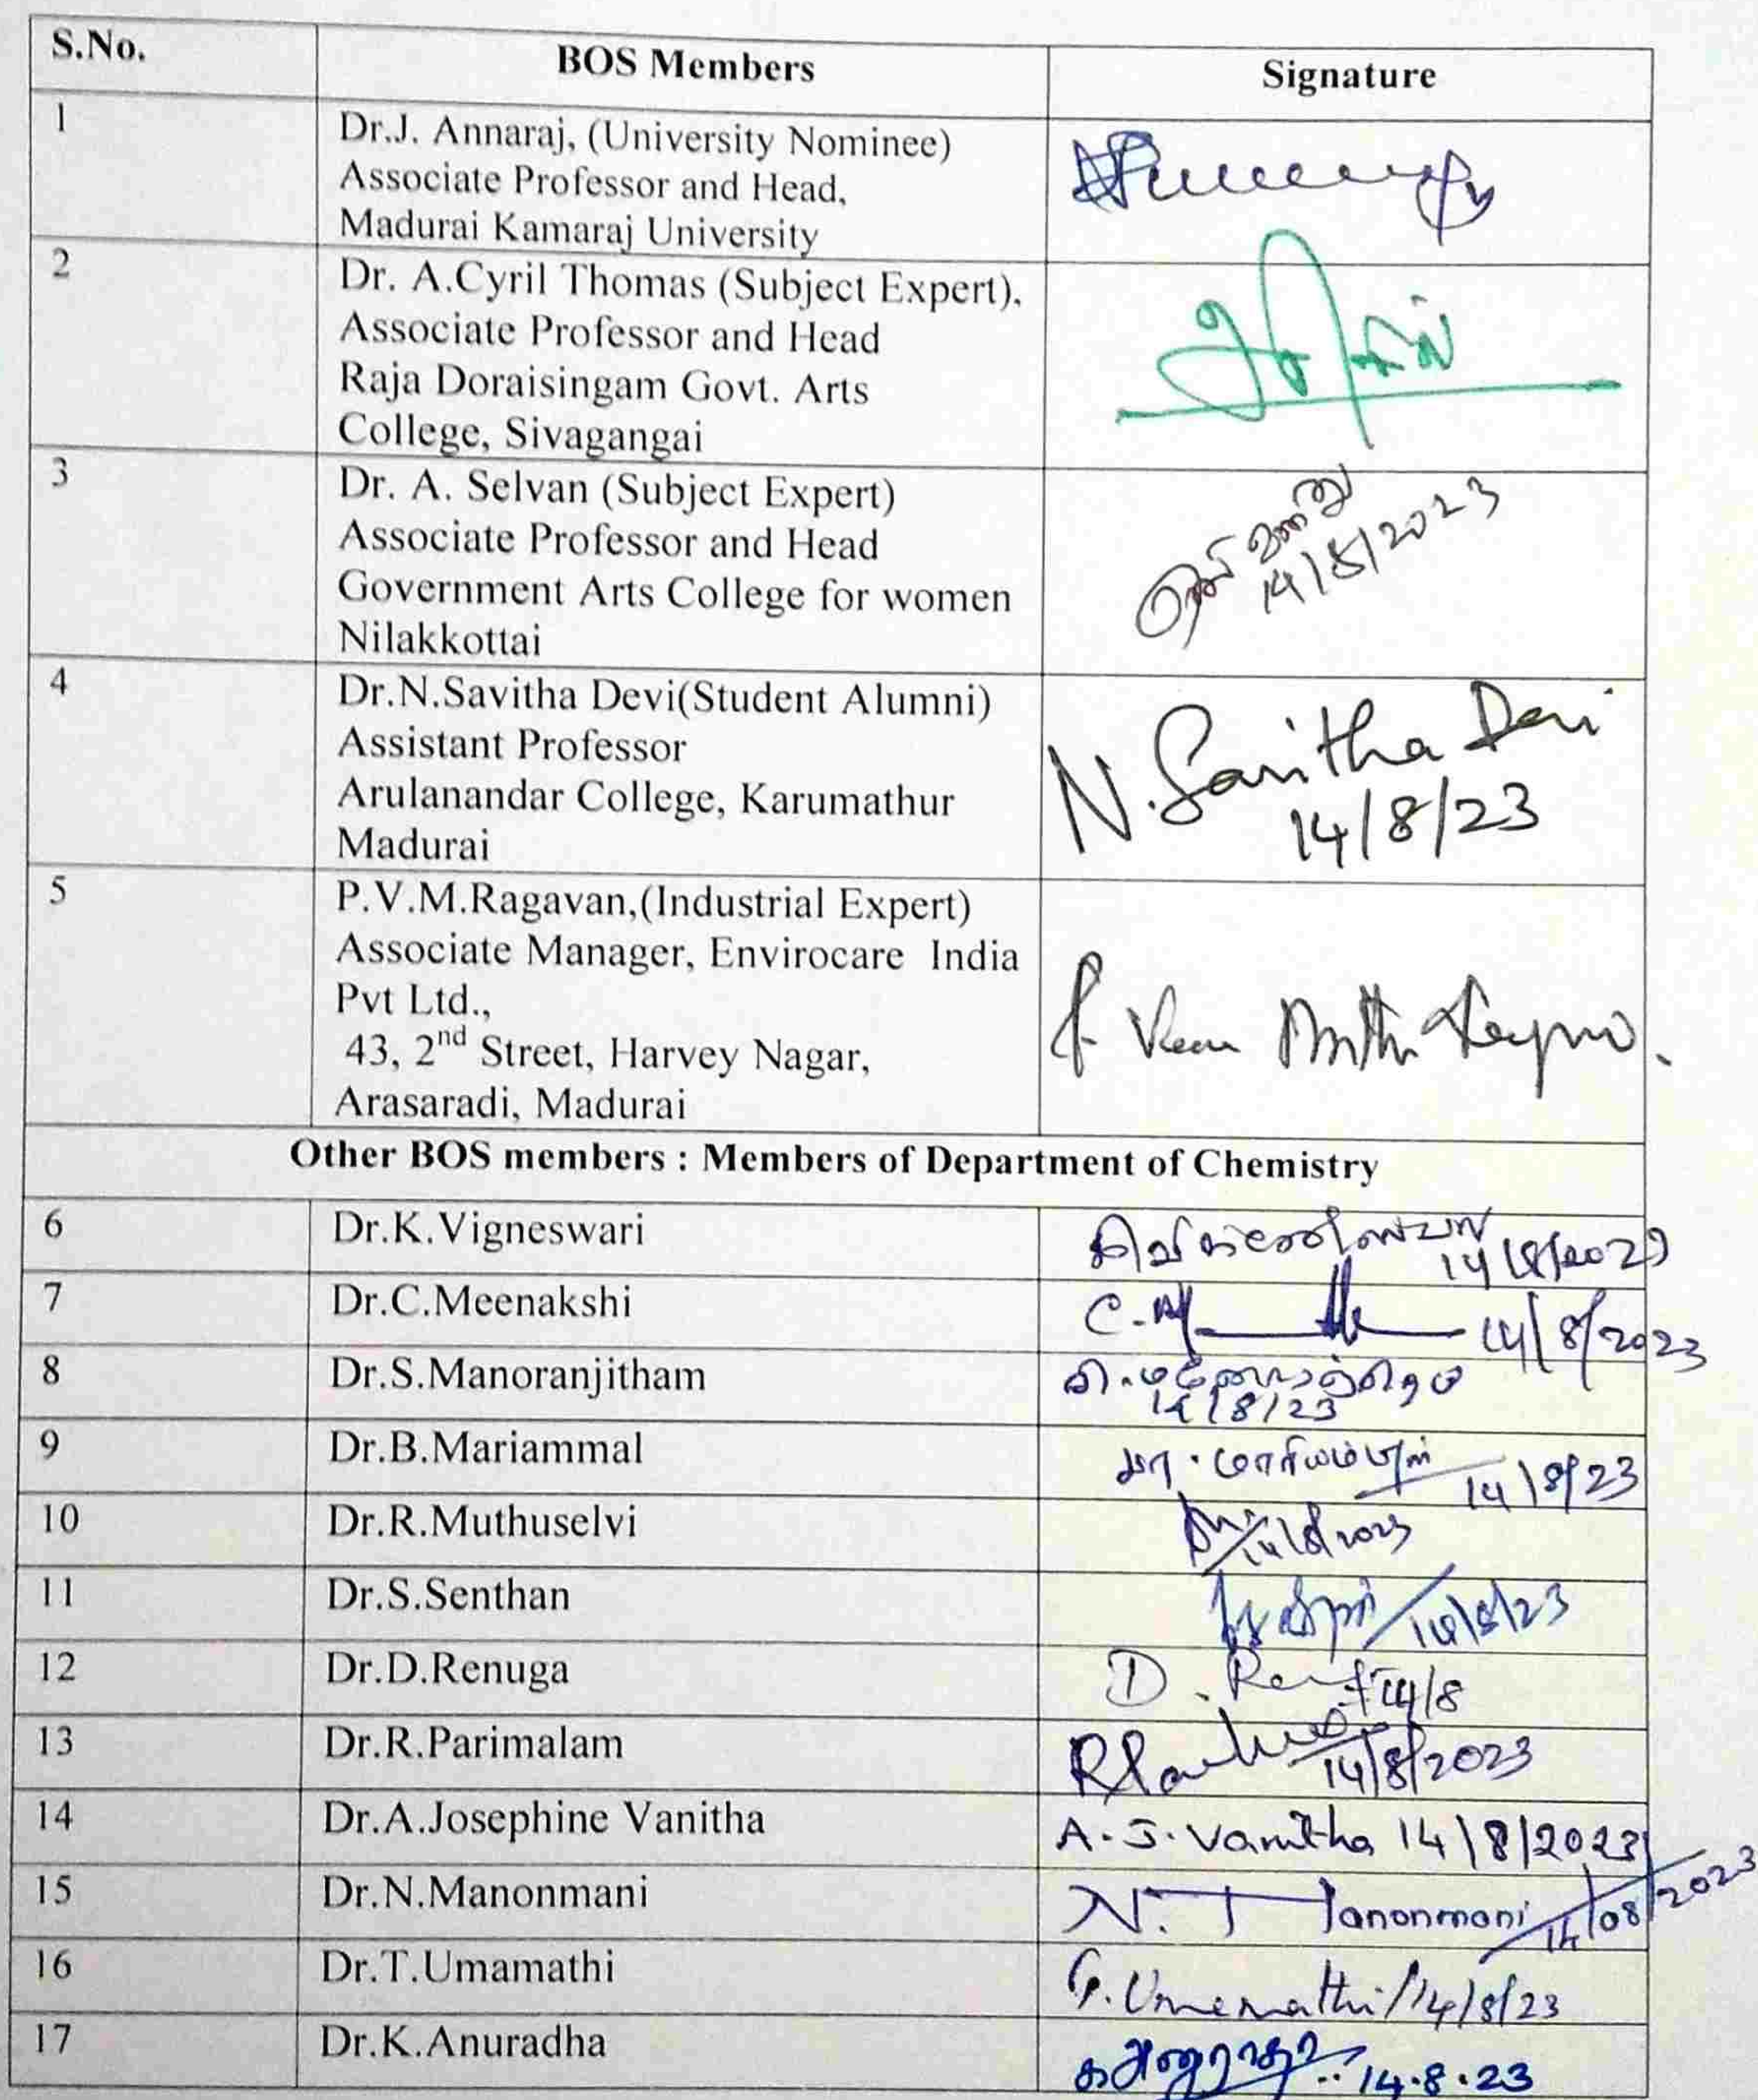 S.No. BOS Members Signature
1 Dr.J. Annaraj, (University Nominee)
Associate Professor and Head,
Madurai Kamaraj University
2 Dr. A.Cyril Thomas (Subject Expert),
Associate Professor and Head
Raja Doraisingam Govt. Arts
College, Sivagangai
3 Dr. A. Selvan (Subject Expert)
Associate Professor and Head
Government Arts College for women
Nilakkottai
14/8/2023
4 Dr.N.Savitha Devi(Student Alumni)
Assistant Professor
Arulanandar College, Karumathur
Madurai
N. Savitha Devi
14/8/23
5 P.V.M.Ragavan,(Industrial Expert)
Associate Manager, Envirocare India
Pvt Ltd.,
43, 2nd Street, Harvey Nagar,
Arasaradi, Madurai
Other BOS members : Members of Department of Chemistry
6 Dr.K.Vigneswari
14/8/2023
7 Dr.C.Meenakshi C. 14/8/2023
8 Dr.S.Manoranjitham
14/8/23
9 Dr.B.Mariammal 14/8/23
10 Dr.R.Muthuselvi 14/8/2023
11 Dr.S.Senthan 14/8/23
12 Dr.D.Renuga D. 14/8
13 Dr.R.Parimalam
14/8/2023
14 Dr.A.Josephine Vanitha A. J. Vanitha 14/8/2023
15 Dr.N.Manonmani N. Manonmani 14/08/2023
16 Dr.T.Umamathi Umamathi/14/8/23
17 Dr.K.Anuradha 14.8.23